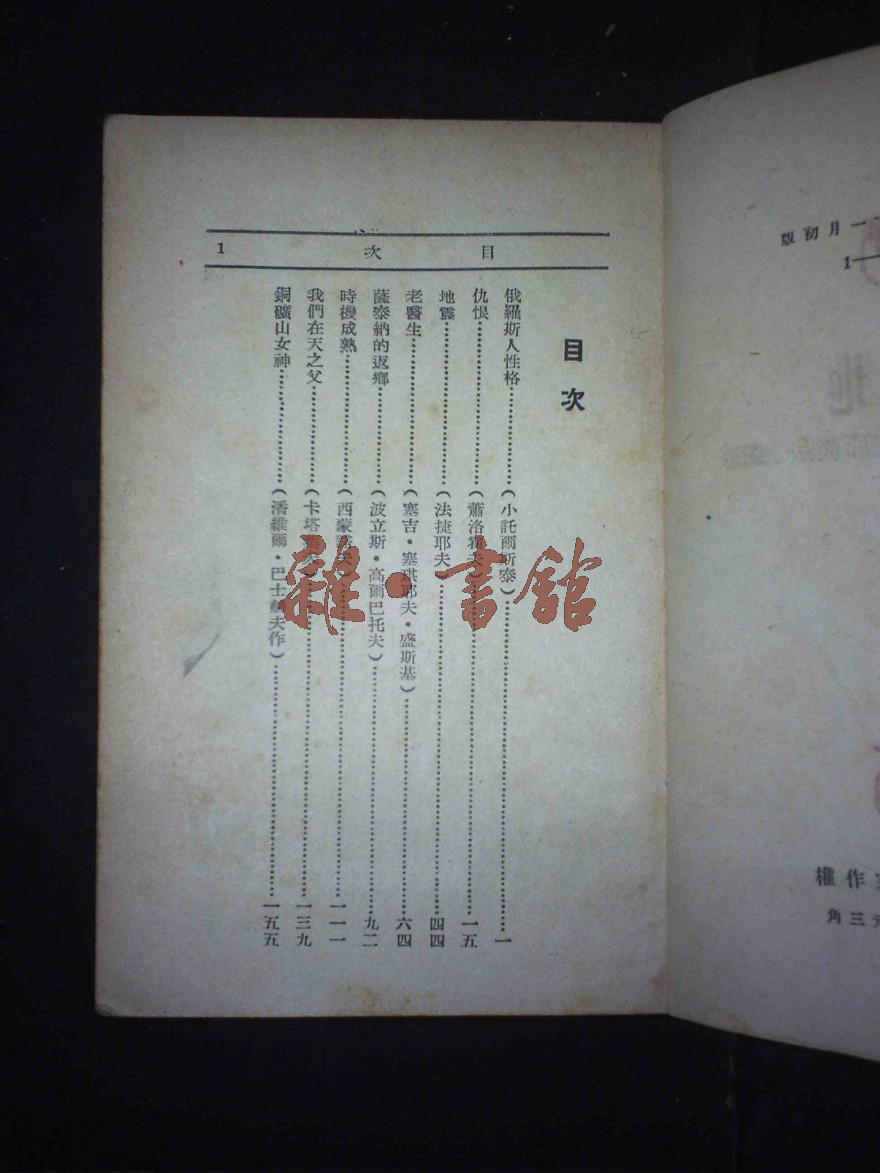 版初月一
1
地
權作
角三元
目次
1
目次
俄羅斯人性格……(小託爾斯泰)……一
仇恨……(蕭洛霍夫)……一五
地震……(法捷耶夫……四四
老醫生……(塞吉·塞琪耶夫·盛斯基)……六四
薩泰納的返鄉……(波立斯·高爾巴托夫)……九二
時機成熟……(西蒙諾夫)……一一一
我們在天之父……(卡塔……一三九
銅礦山女神……(潘維爾·巴士 夫作)……一五五
雜·書館